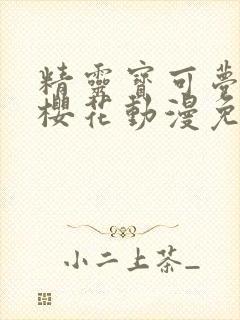 精靈寶可夢
櫻花動漫免
小二上茶_